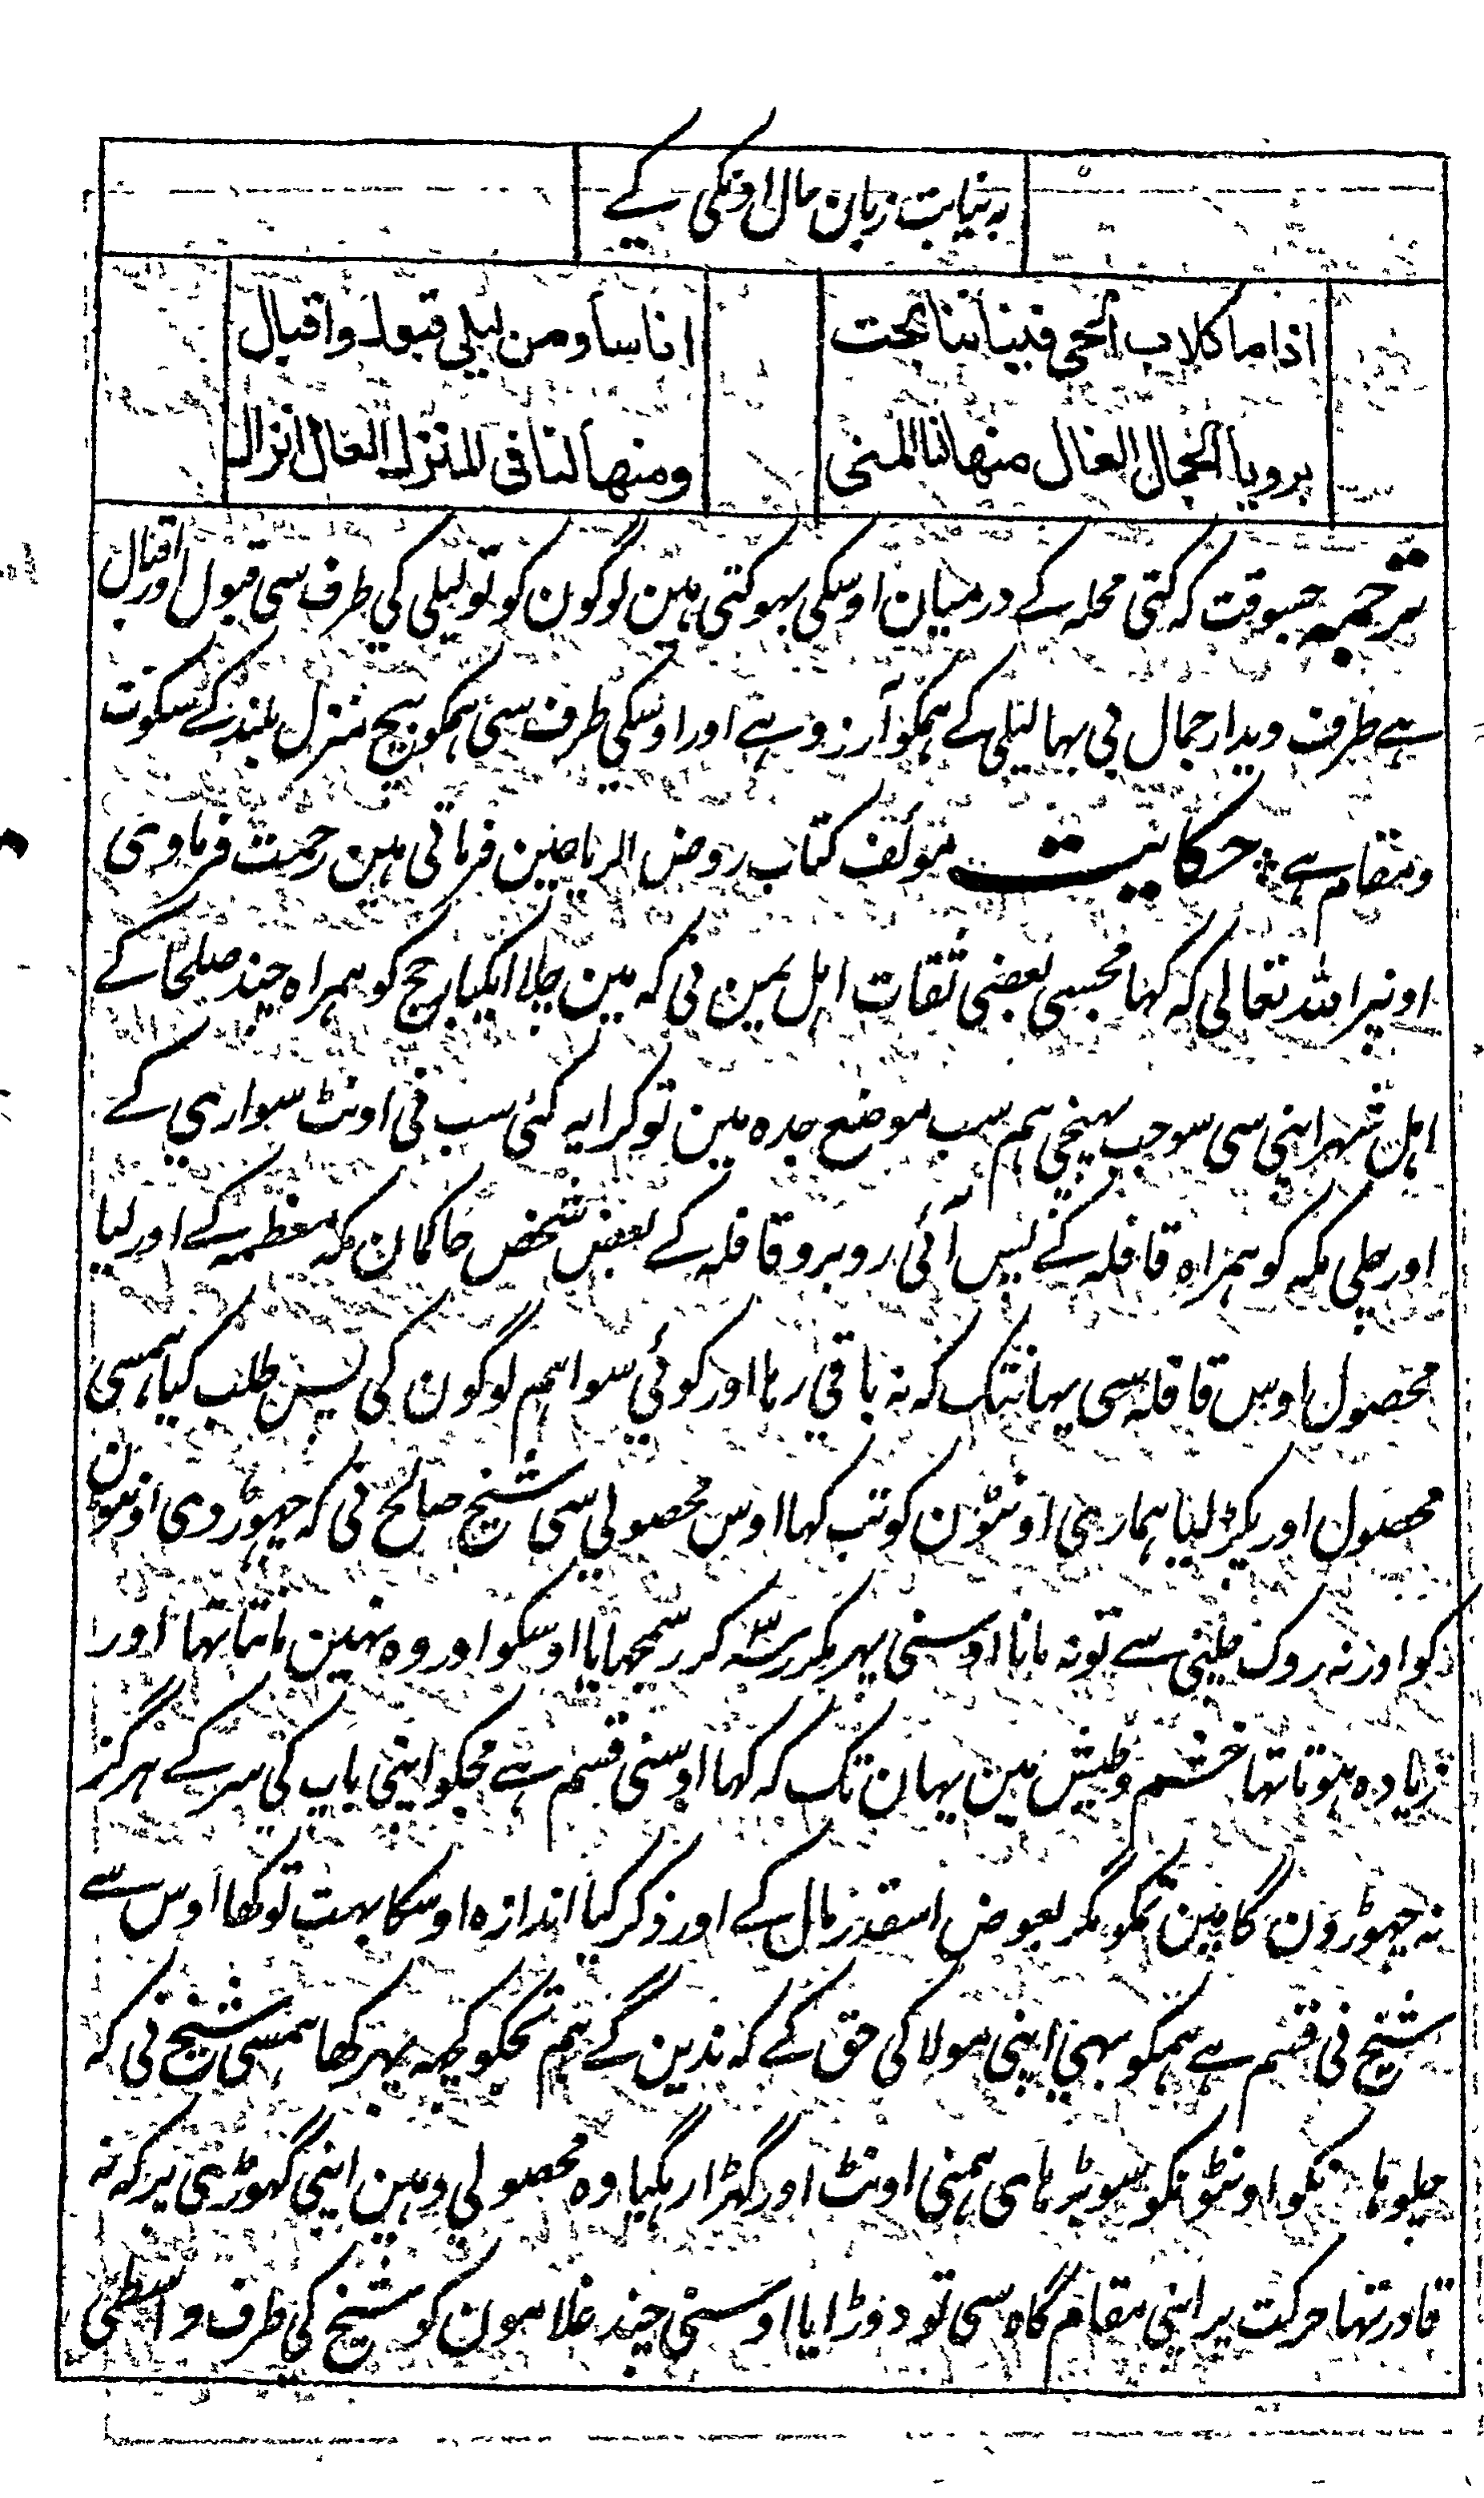 به نیابت زبان حال اونکی کے
اذا ما کلاب الحی فینا انبحت اناسا ومن لیلی قبول واقبال
برویا الجمال الغال منها لنا المنی ومنها لنا فی المنزل العال انزال
ترجمہ جسوقت کہ کتی محلہ کے درمیان اوسکی بہوکتی ہین لوگون کو تو لیلی کی طرف سی قبول اور اقبال
ہے طرف دیدار جمال بی بہا لیلی کے ہمکو آرزو ہے اور اوسکی طرف سی ہمکو بیچ منزل بلند کے سکونت
ومقام ہے حکایت مؤلف کتاب روض الریاحین فرماتی ہین رحمت فرماوی
اونپر اللہ تعالی کہ کہا مجسی بعضی ثقات اہل یمن نی کہ مین چلا ایکبار حج کو ہمراہ چند صلحا کے
اہل شہر اپنی سی سو جب پہنچی ہم سب موضع جدہ مین تو کرایہ کئی سب نی اونٹ سواری کے
اور چلی مکہ کو ہمراہ قافلہ کے پس آئی روبرو قافلہ کے بعض شخص حاکمان مکہ معظمہ کے اور لیا
محصول اوس قافلہ سی یہانتک کہ نہ باقی رہا اور کوئی سوا ہم لوگون کی پس طلب کیا ہمسی
محصول اور پکڑ لیا ہماری اونٹون کو تب کہا اوس محصولی سی شیخ صالح نی کہ چہوڑ دی اونٹون
کو اور نہ روک چلنی سے تو نہ مانا اوسنی پہر مکرر سہ کرر سمجہایا اوسکو اور وہ نہین مانتا تہا اور
زیادہ ہوتا تہا خشم وطیش مین یہان تک کہ کہا اوسنی قسم ہے مجکو اپنی باپ کی سر کے ہرگز
نہ چہوڑون گا مین تمکو مگر بعوض اسقدر مال کے اور ذکر کیا اندازہ اوسکا بہت تو کہا اوس سے
شیخ نی قسم ہے ہمکو بہی اپنی مولا کی حق کے کہ ندین گے ہم تجکو کچہہ پہر کہا ہمسی شیخ نی کہ
چلو اونٹونکو ہمنی اونٹ اور کہڑا رہگیا وہ محصولی وہین اپنی گہوڑی پر کہ نہ
قادر تہا حرکت پر اپنی مقام گاہ سی تو دوڑایا اوسنی چند غلامون کو شیخ کی طرف واسطی